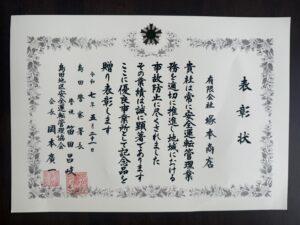 表彰状
有限会社 塚本商店
貴社は常に安全運転管理業
務を適切に推進し地域における
事故防止に尽くされました
その業績は誠に顕著であります
ここに優良事業所として記念品を
贈り表彰します
令和七年五月二十一日
島田警察署長
警視 笛田昌岐
島田地区安全運転管理協会
会長 岡本廣